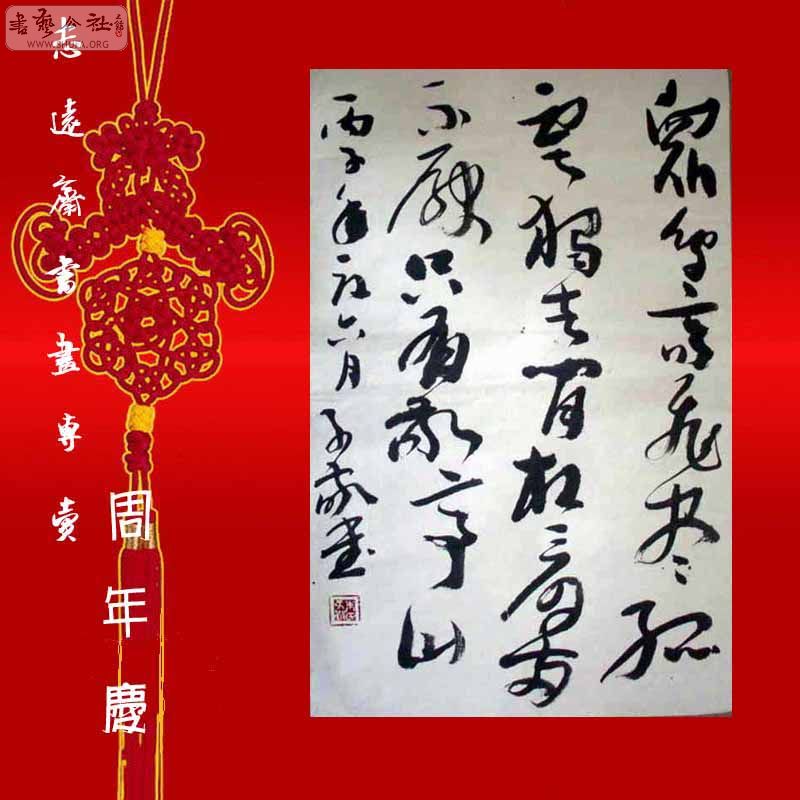 書藝公社
WWW.SHUFA.ORG
眾鳥高飛盡孤
雲獨去閒相看兩
不厭只有敬亭山
丙子年六月子書
志遠齋書畫專賣
周年慶